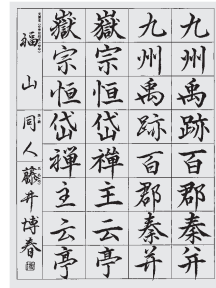 九州禹跡百郡秦并
九州禹跡百郡秦并
嶽宗恒岱禪主云亭
嶽宗恒岱禪主云亭
福山 同人 藤井博春